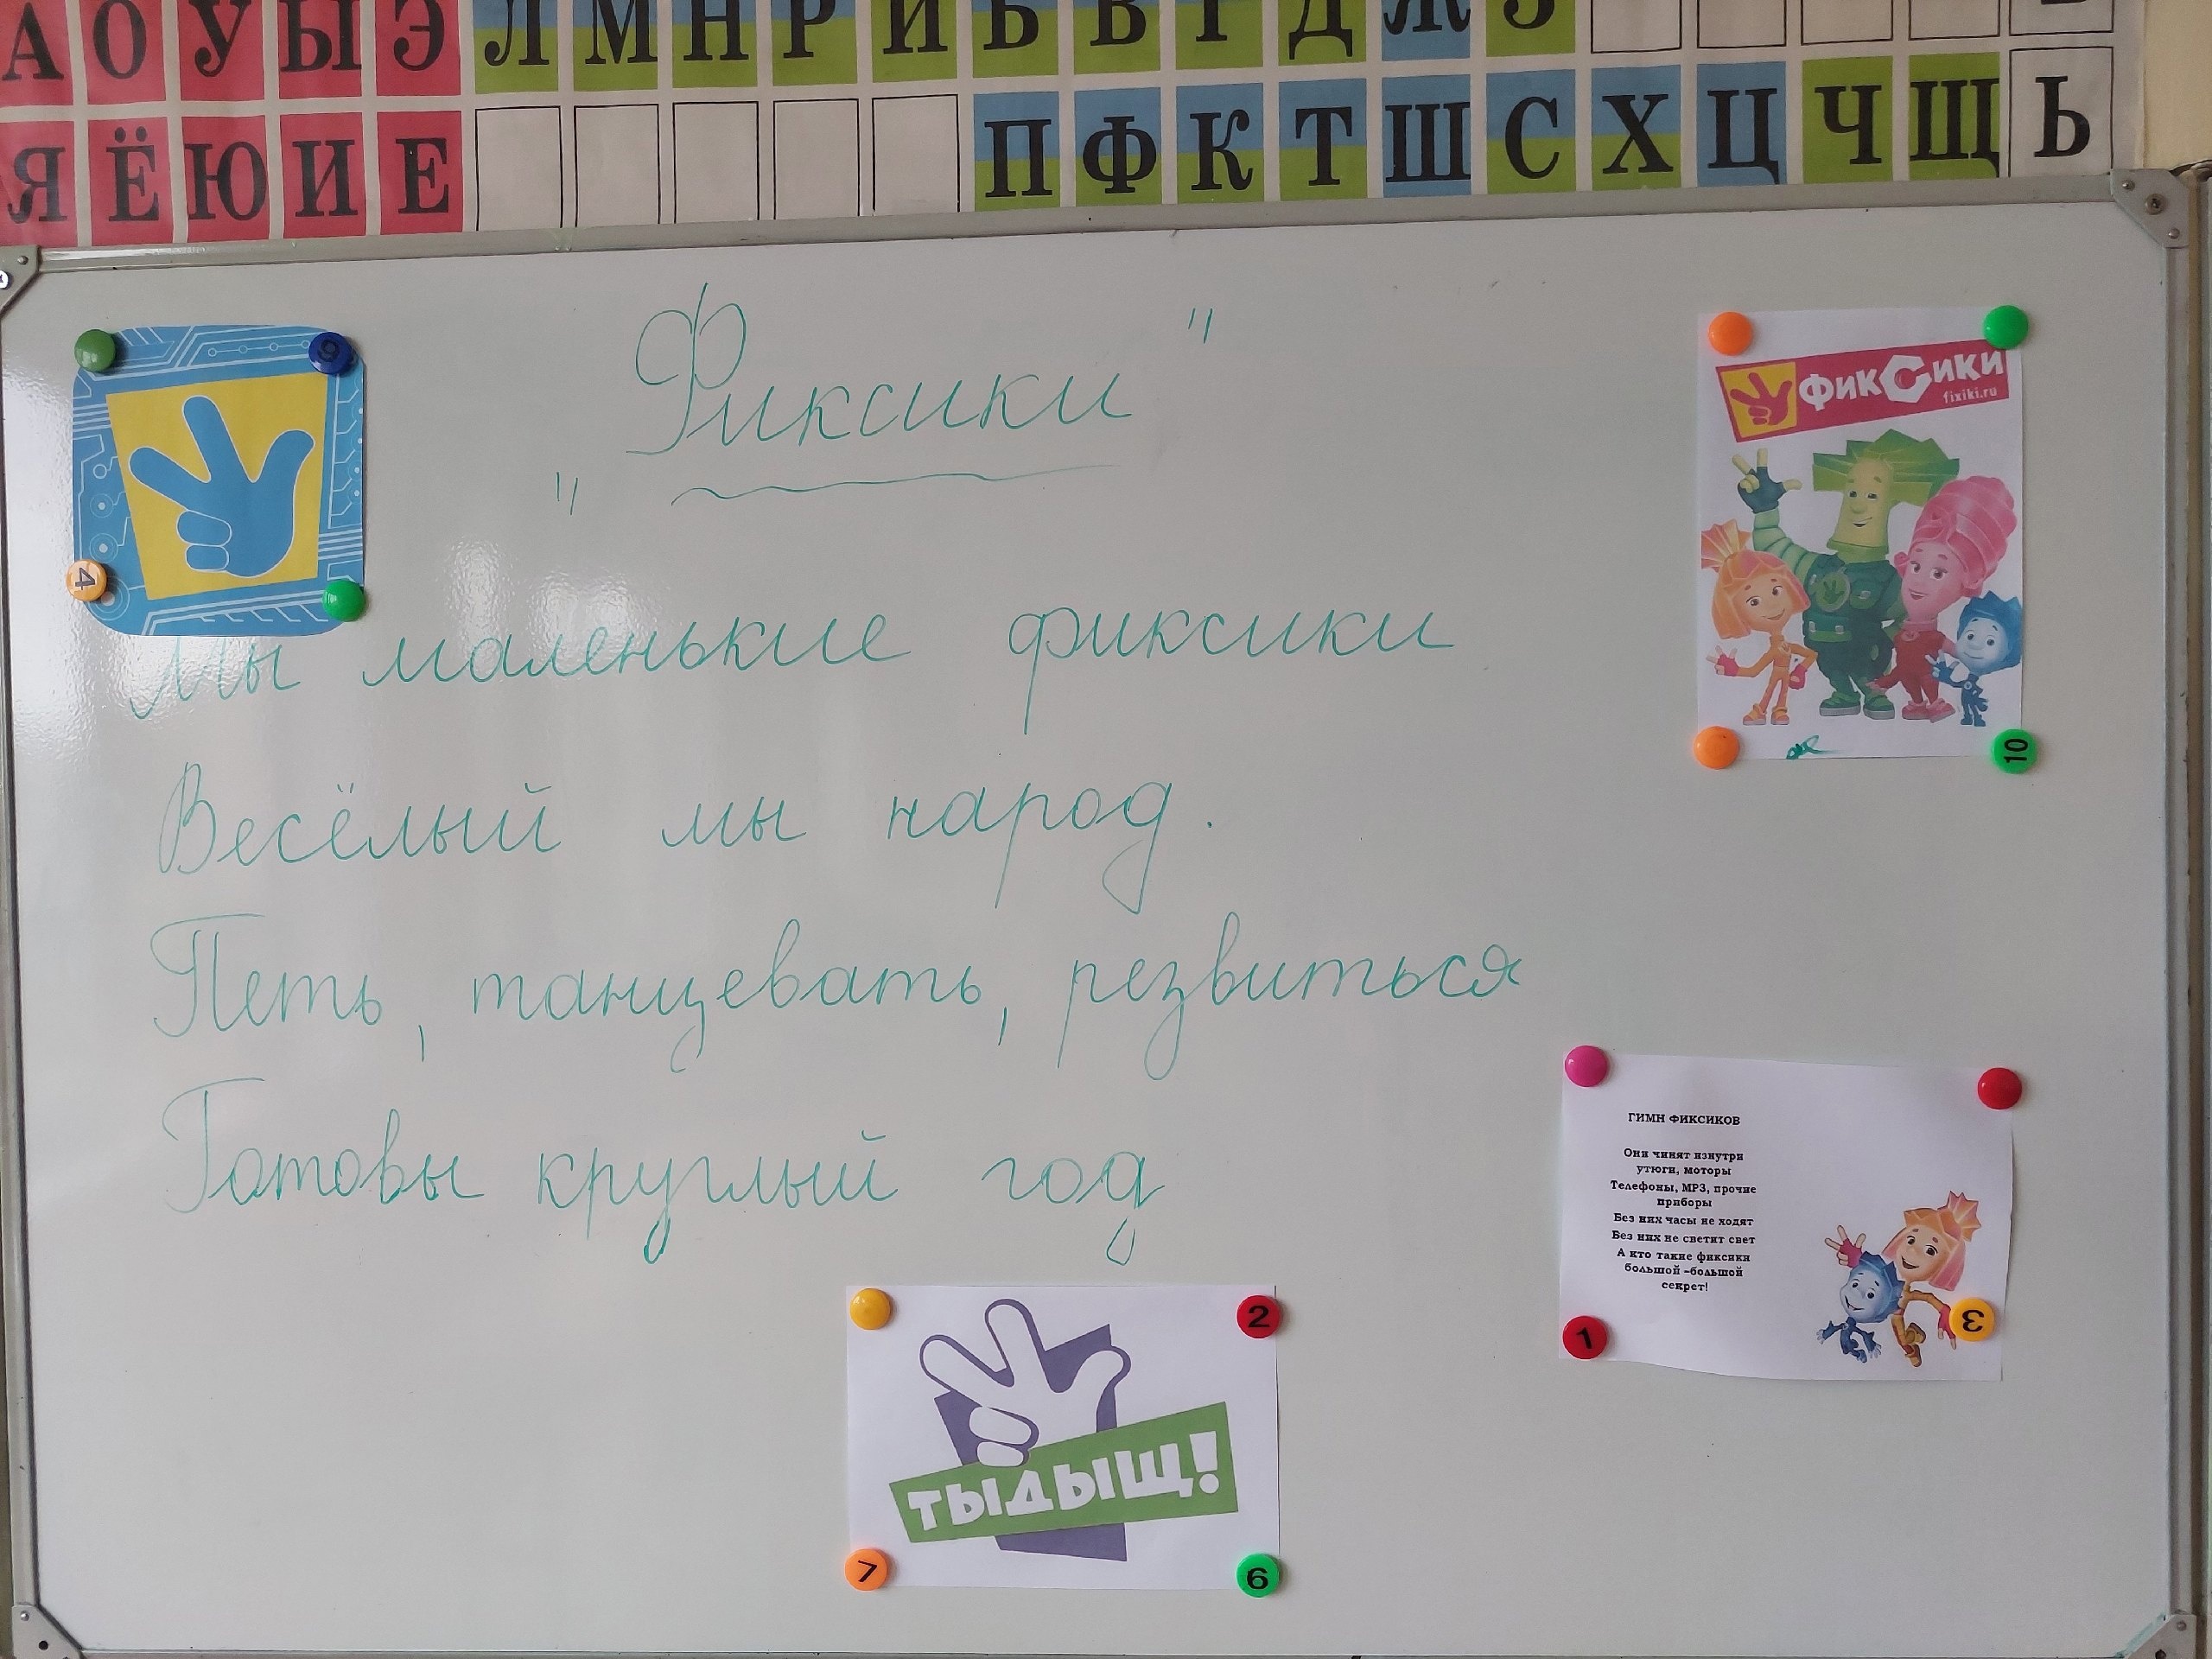 А О У Ы Э Л М Н Р Й Б В Г Д Ж З
Я Ё Ю И Е П Ф К Т Ш С Х Ц Ч Щ Ь
„Фиксики"
Мы маленькие фиксики
Весёлый мы народ.
Петь, танцевать, резвиться
Готовы круглый год
9
4
фиксики
fixiki.ru
10
ГИМН ФИКСИКОВ
Они чинят изнутри
утюги, моторы
Телефоны, МР3, прочие
приборы
Без них часы не ходят
Без них не светит свет
А кто такие фиксики
большой –большой
секрет!
1
3
2
ТЫДЫЩ!
7
6